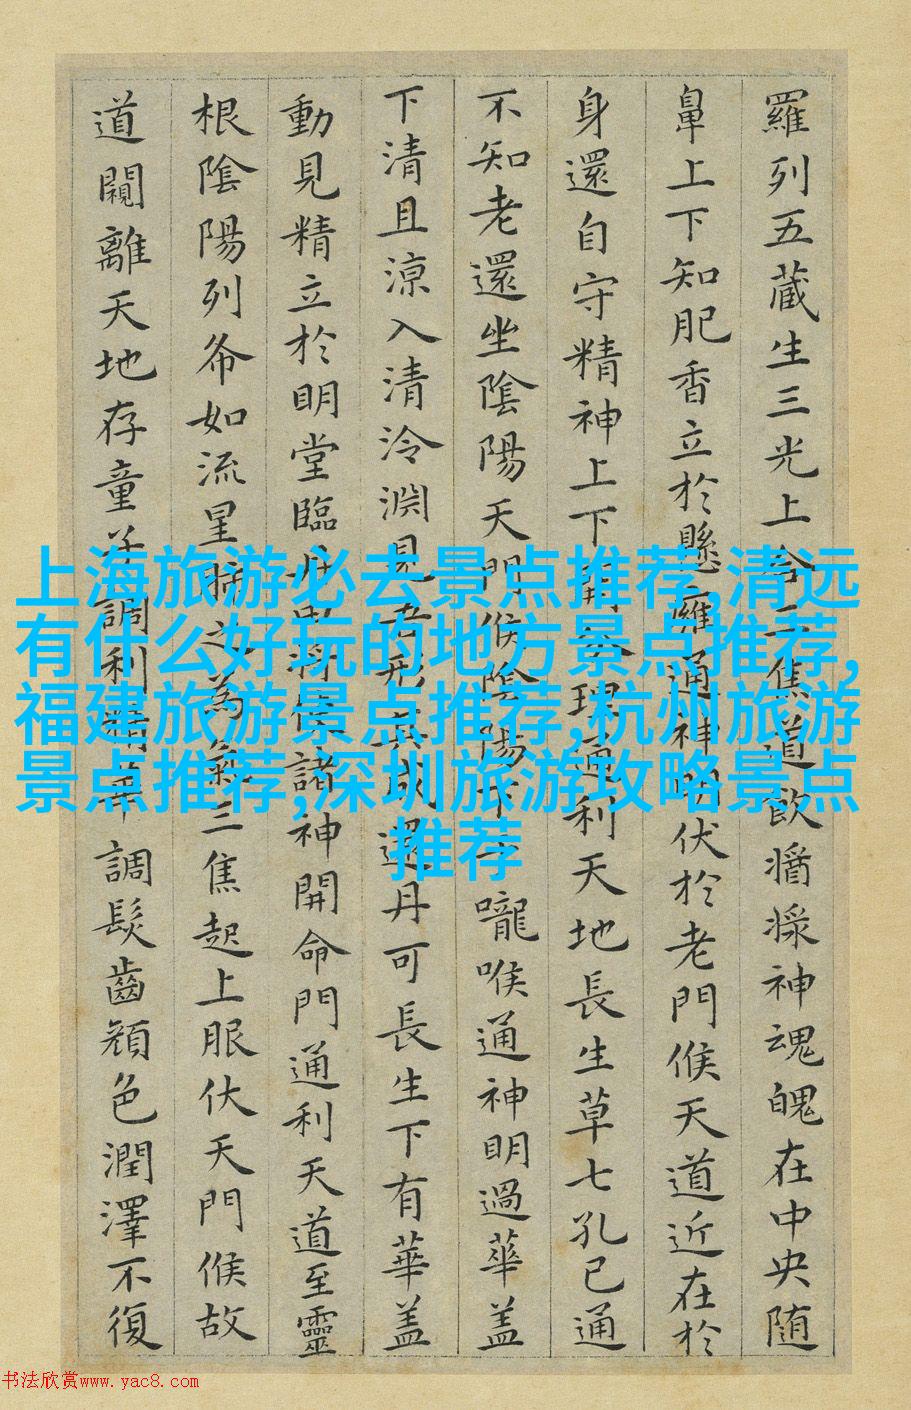 羅列五藏生三光上合三焦道飲醬漿神魂魄在中央随
鼻上下知肥香立於懸雍通神明伏於老門候天道近在於
身還自守精神上下開分理通利天地長生草七孔已通
不知老還坐陰陽天門候陰陽下于嚨喉通神明過華盖
下清且涼入清泠淵見吾形其成還丹可長生下有華盖
動見精立於明堂臨丹田將使諸神開命門通利天道至靈
根陰陽列布如流星肺之為氣三焦起上服伏天門候故
道闚離天地存童子調利精華調髮齒顔色潤澤不復
上海旅游必去景点推荐,清远
有什么好玩的地方景点推荐,
福建旅游景点推荐,杭州旅游
景点推荐,深圳旅游攻略景点
推荐
书法欣赏www.yac8.com